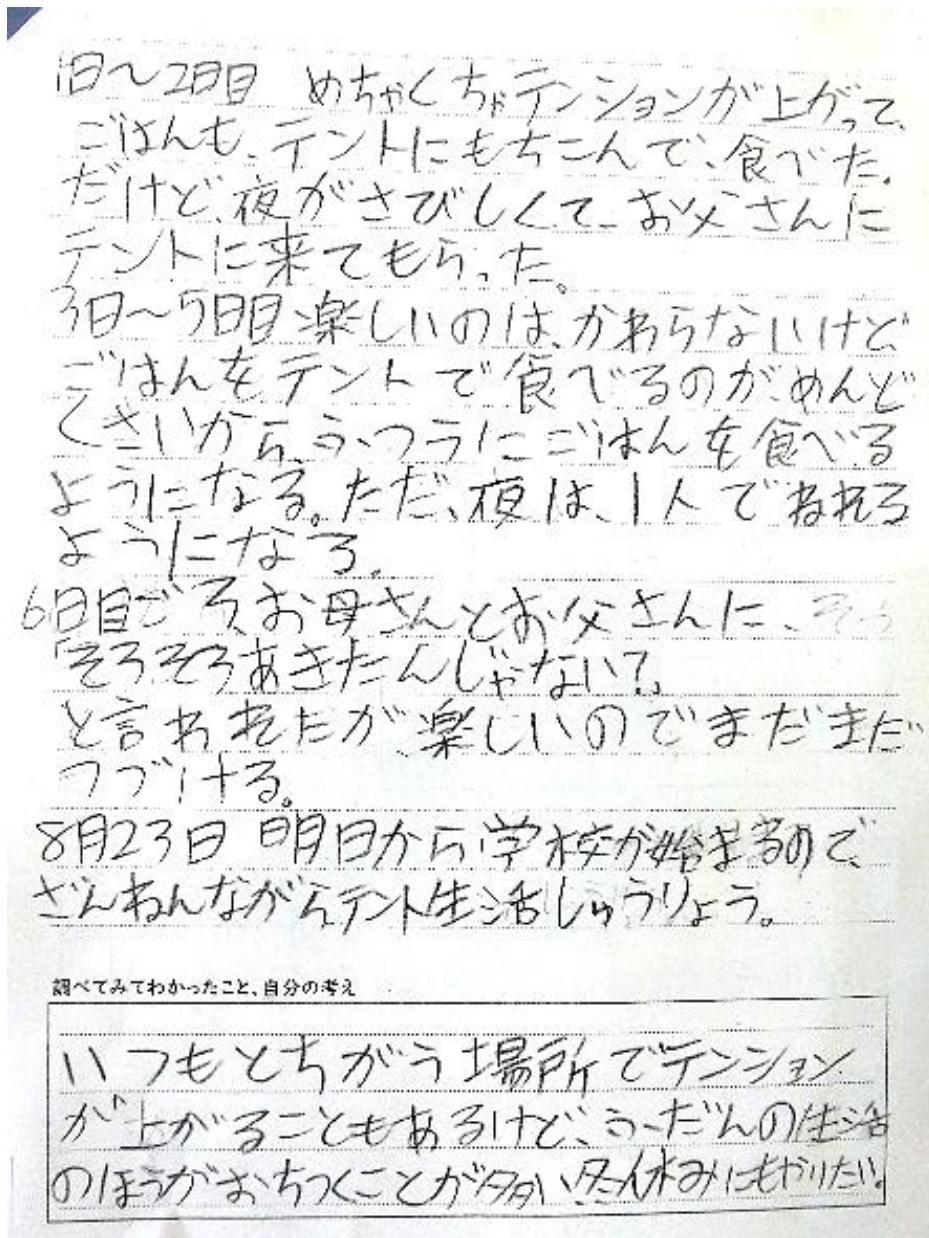 1日～2日目 めちゃくちゃテンションが上がって、
ごはんも、テントにもちこんで、食べた。
だけど、夜がさびしくて、お父さんに
テントに来てもらった。
3日～5日目 楽しいのは、かわらないけど、
ごはんをテントで食べるのが、めんど
くさいから、ふつうにごはんを食べる
ようになる。ただ、夜は、1人でねれる
ようになる。
6日目ごろ、お母さんとお父さんに、そろ
「そろそろあきたんじゃない?」
と言われたが、楽しいのでまだまだ
つづける。
8月23日 明日から学校が始まるので、
ざんねんながら、テント生活しゅうりょう。
調べてみてわかったこと、自分の考え
いつもとちがう場所でテンション
が上がることもあるけど、ふだんの生活
のほうがおちつくことが多い。冬休みにもやりたい。